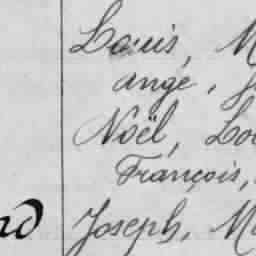 Louis, M
ange, J
Noël, Lou
François,
nd Joseph, Ma